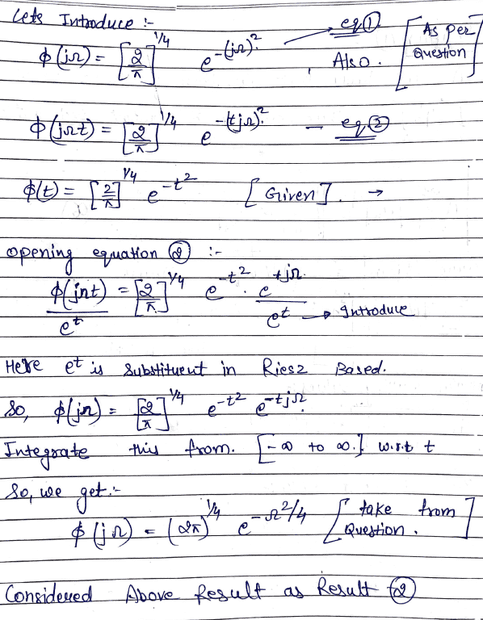 Lets Introduce :-
ϕ(jΩ) = [2/π]^1/4 e^-(jΩ)² → eq① , Also. [As per Question]
ϕ(jΩt) = [2/π]^1/4 e^-(tjΩ)² — eq②
ϕ(t) = [2/π]^1/4 e^-t² [Given]. →
opening equation ② :-
ϕ(jΩt)/e^t = [2/π]^1/4 e^-t² . e^-tjΩ/e^t → Introduce
Here e^t is Substituent in Riesz Based.
So, ϕ(jΩ) = [2/π]^1/4 e^-t² e^-tjΩ.
Integrate this from. [-∞ to ∞.] w.r.t t
So, we get:-
ϕ(jΩ) = (2π)^1/4 e^-Ω²/4 [take from Question.]
Considered Above Result as Result ②